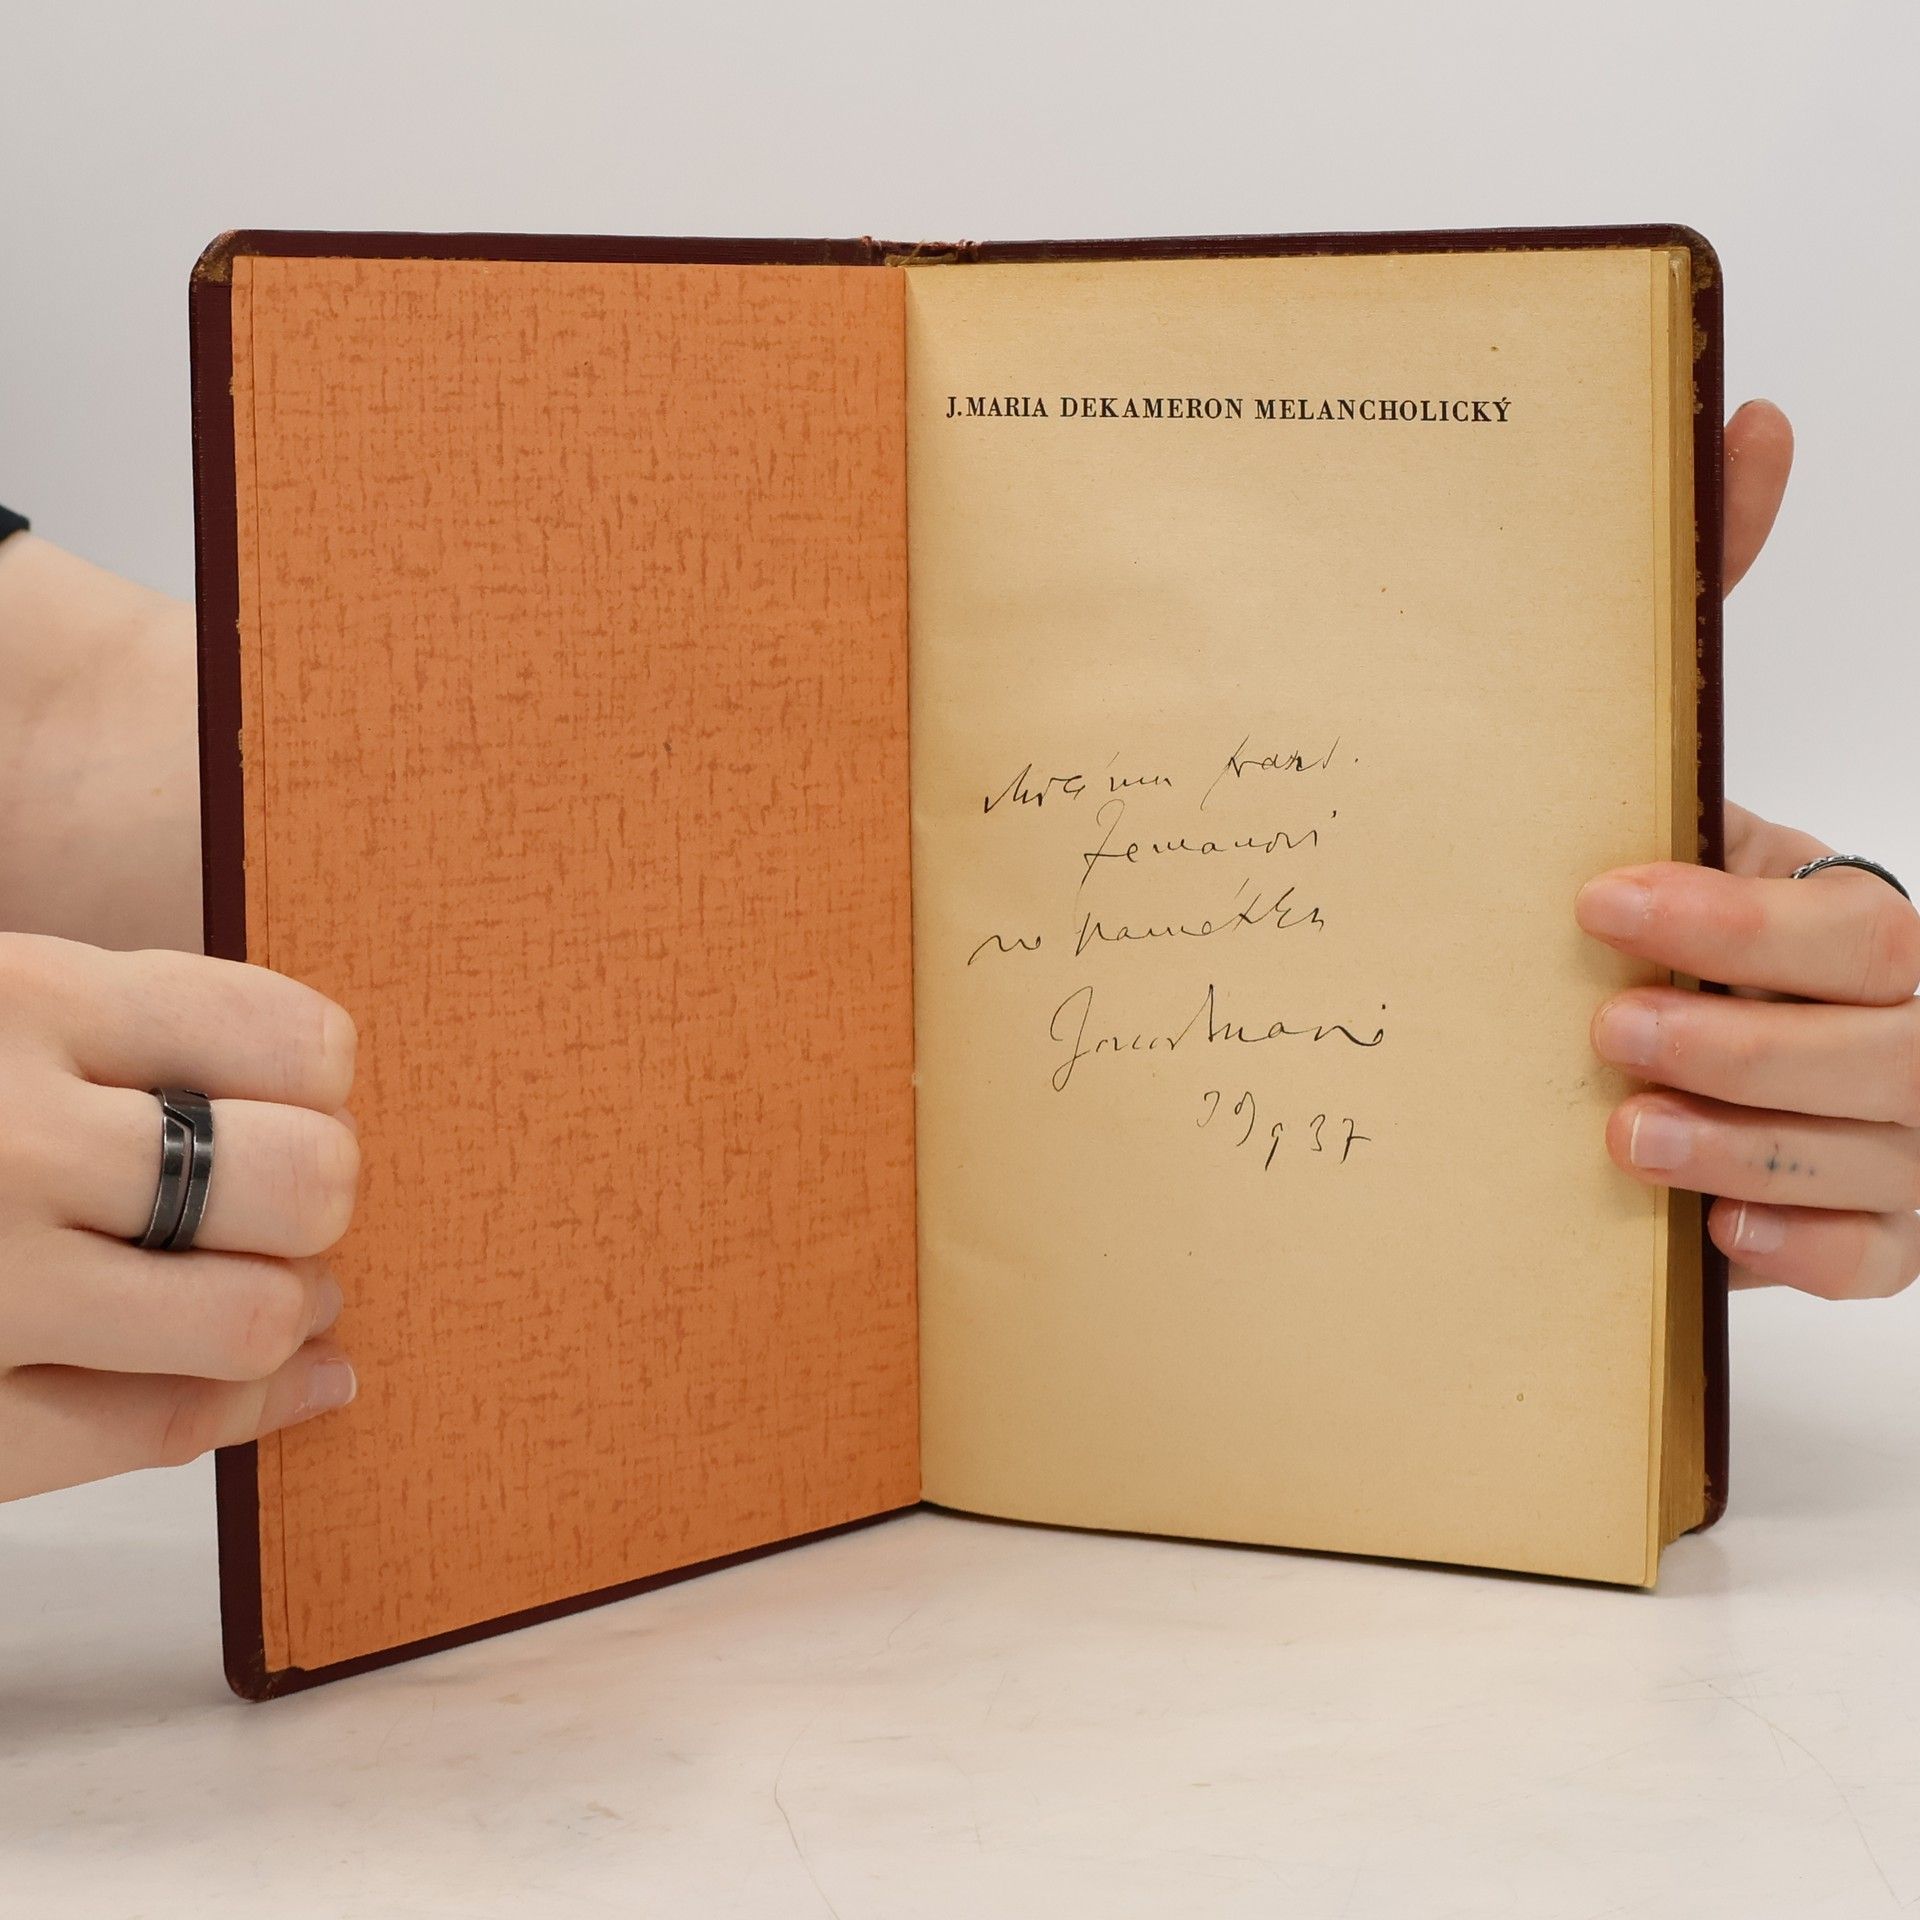 J. MARIA DEKAMERON MELANCHOLICKÝ
Milému
Zemanovi
na památku
Jaroslav Maria
9 37